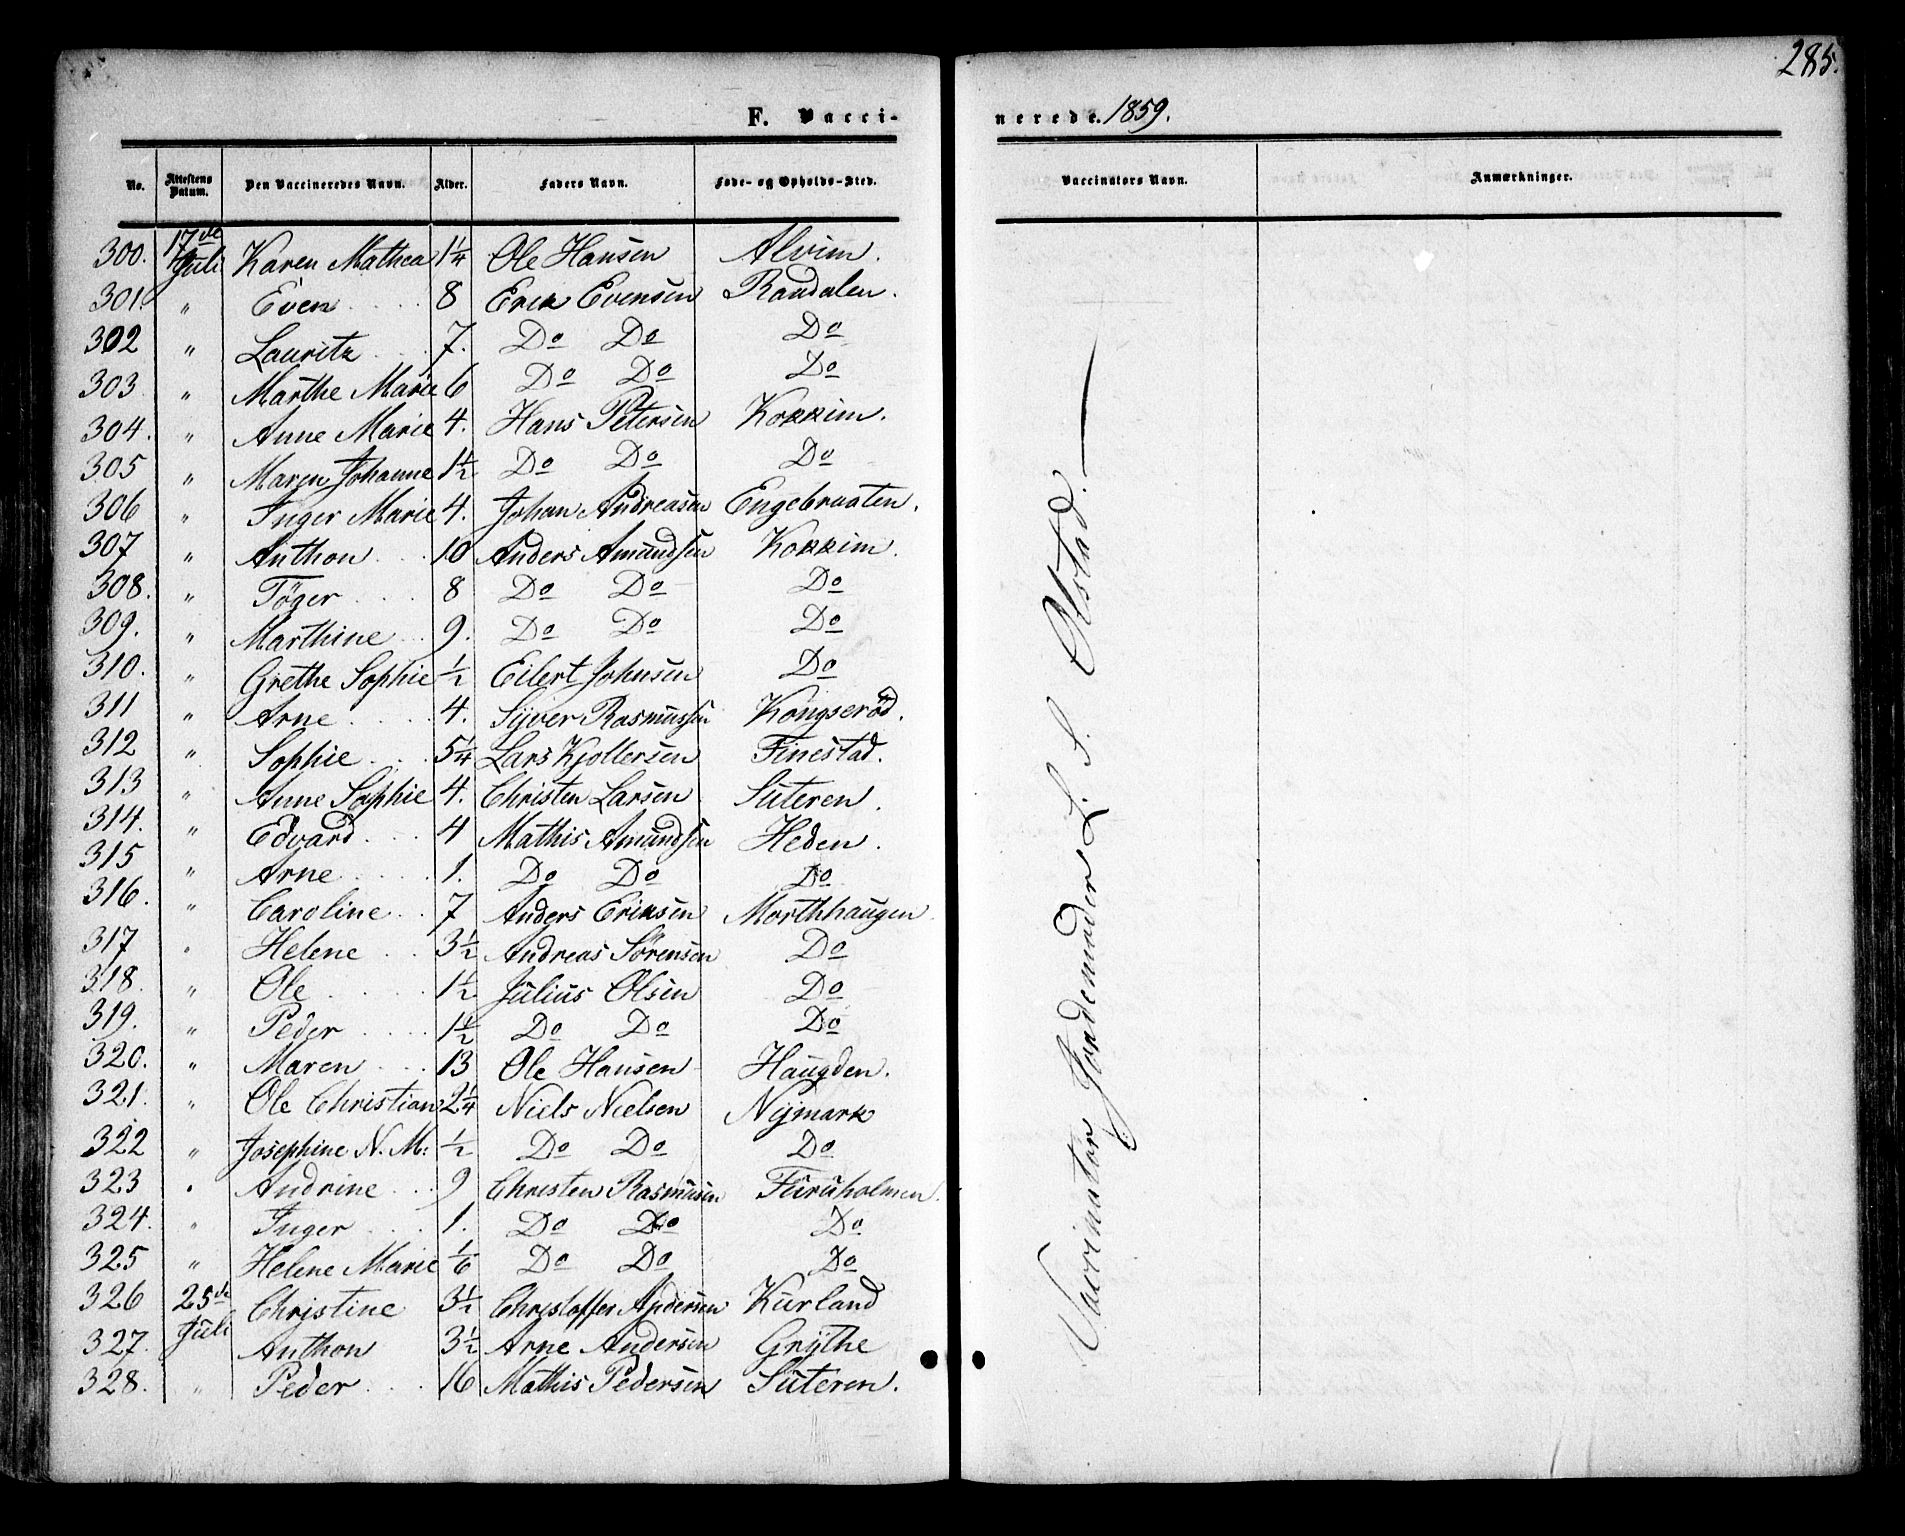 285.
F. Vacci-
nerede. 1859.
No. Attestens Datum. Den Vaccineredes Navn. Alder. Faders Navn. Føde- og Opholds-Sted. Vaccinators Navn. Anmærkninger.
300. 17de Juli Karen Mathea 1 1/4 Ole Hansen Alvim.
301. " Even 8 Erik Evensen Raudalen.
302 " Lauritz 7. Do Do Do
303 " Marthe Marie 6 Do Do Do
304. " Anne Marie 4. Hans Petersen Kokkim.
305 " Maren Johanne 1 1/2 Do Do Do
306 " Inger Marie 4. Johan Andreasen Engebraaten.
307 " Anthon 10 Anders Amundsen Kokkim.
308. " Töger 8 Do Do Do
309. " Marthine 9. Do Do Do
310. " Grethe Sophie 1/2 Eilert Johnsen Do
311 " Arne 4. Syver Rasmussen Kongseröd.
312 " Sophie 5 1/4 Lars Kjollersen Finestad.
313 " Anne Sophie 4. Christen Larsen Suteren.
314. " Edvard 4 Mathis Amundsen Heden.
315 " Arne 1. Do Do Do
316. " Caroline 7 Anders Eriksen Morthhaugen
317 " Helene 3 1/2 Andreas Sörensen Do
318. " Ole 1 1/2 Julius Olsen Do
319. " Peder 1 1/2 Do Do Do
320. " Maren 13 Ole Hansen Haugden.
321. " Ole Christian 2 1/4 Niels Nielsen Nymark
322 " Josephine N. M: 1/2 Do Do Do
323 " Andrine 9 Christen Rasmusen Furuholmen.
324. " Inger 1. Do Do Do
325 " Helene Marie 1/6 Do Do Do
326 25de Juli Christine 3 1/2 Christoffer Andersen Kurland
327. Anthon 3 1/2 Arne Andersen Grythe
328. " Peder 16 Mathis Pedersen Suteren.
Vaccinator Jordemoder L. S. Olstad.